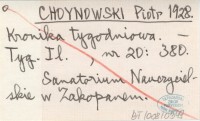 CHOYNOWSKI Piotr 1928.
Kronika tygodniowa. —
Tyg. Il., nr 20: 380.
Sanatorium Nauczyciel-
skie w Zakopanem.